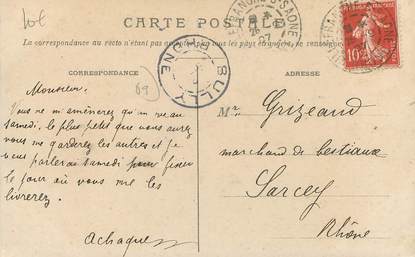 CARTE POSTALE
La correspondance au recto n'étant pas acceptée par tous les pays étrangers, se renseigner
CORRESPONDANCE
ADRESSE
BULLY
RHONE
10c
69
Monsieur.
Vous ne m'amènerez qu'un veau
samedi. le plus petit que vous aurez
vous me garderez les autres et je
vous parlerai samedi pour fixer
le jour où vous me les
livrerez.
Mr Grizeaud
marchand de bestiaux
Sarcey
Rhône